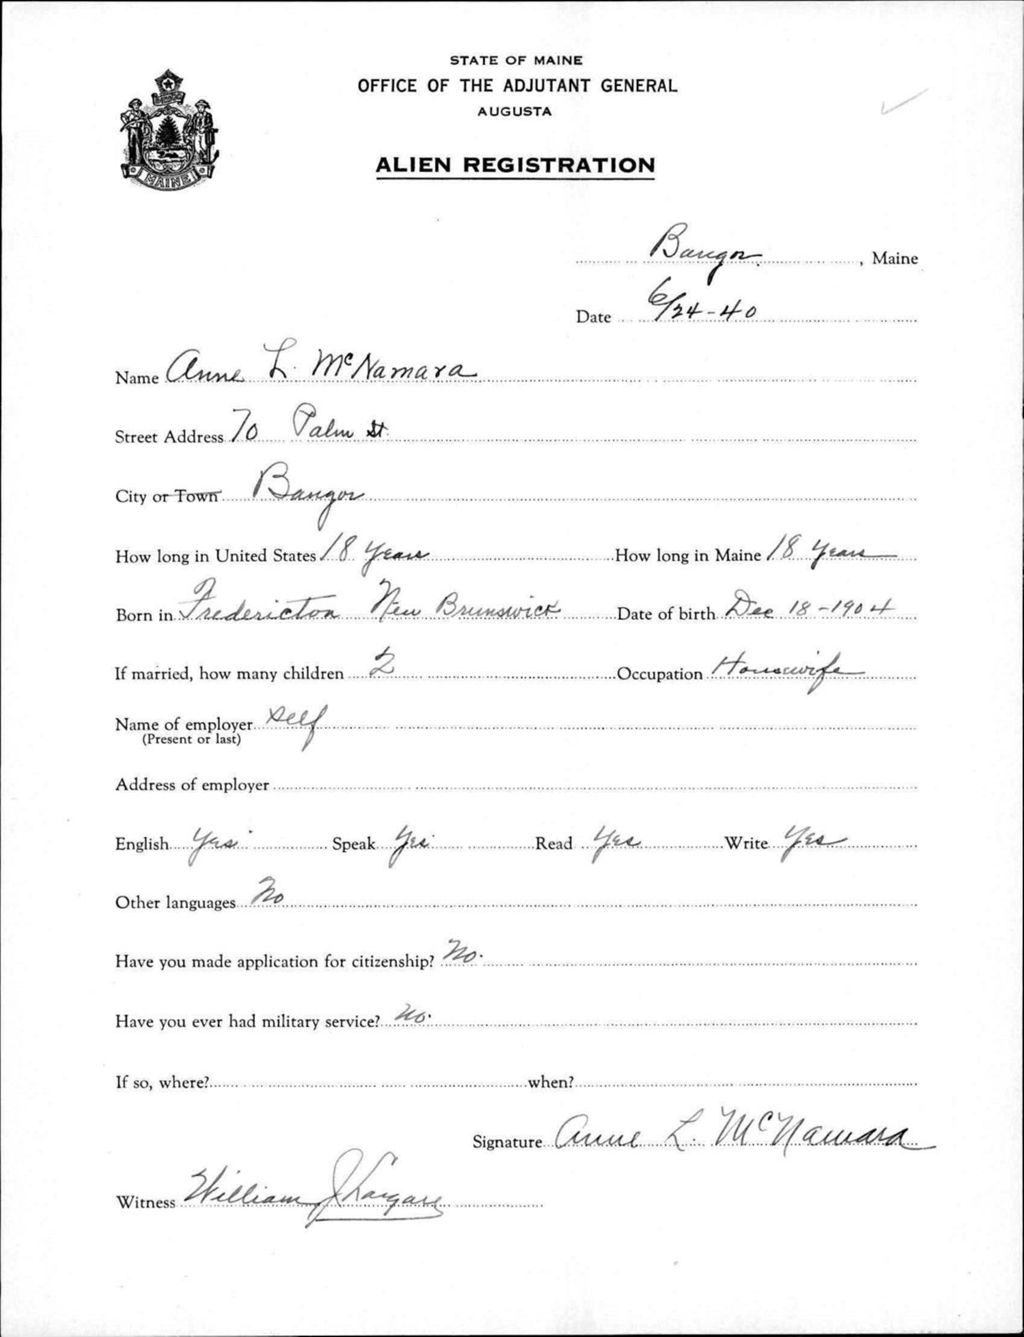 STATE OF MAINE
OFFICE OF THE ADJUTANT GENERAL
AUGUSTA
ALIEN REGISTRATION
MAINE
Bangor, Maine
Date 6/24-40
Name Anne L. McNamara
Street Address 70 Palm St.
City or Town Bangor
How long in United States 18 Years How long in Maine 18 Years
Born in Fredericton New Brunswick Date of birth Dec 18-1904
If married, how many children 2 Occupation Housewife
Name of employer self
(Present or last)
Address of employer
English Yes Speak Yes Read Yes Write Yes
Other languages No
Have you made application for citizenship? No.
Have you ever had military service? No.
If so, where? when?
Signature Anne L. McNamara
Witness William J.